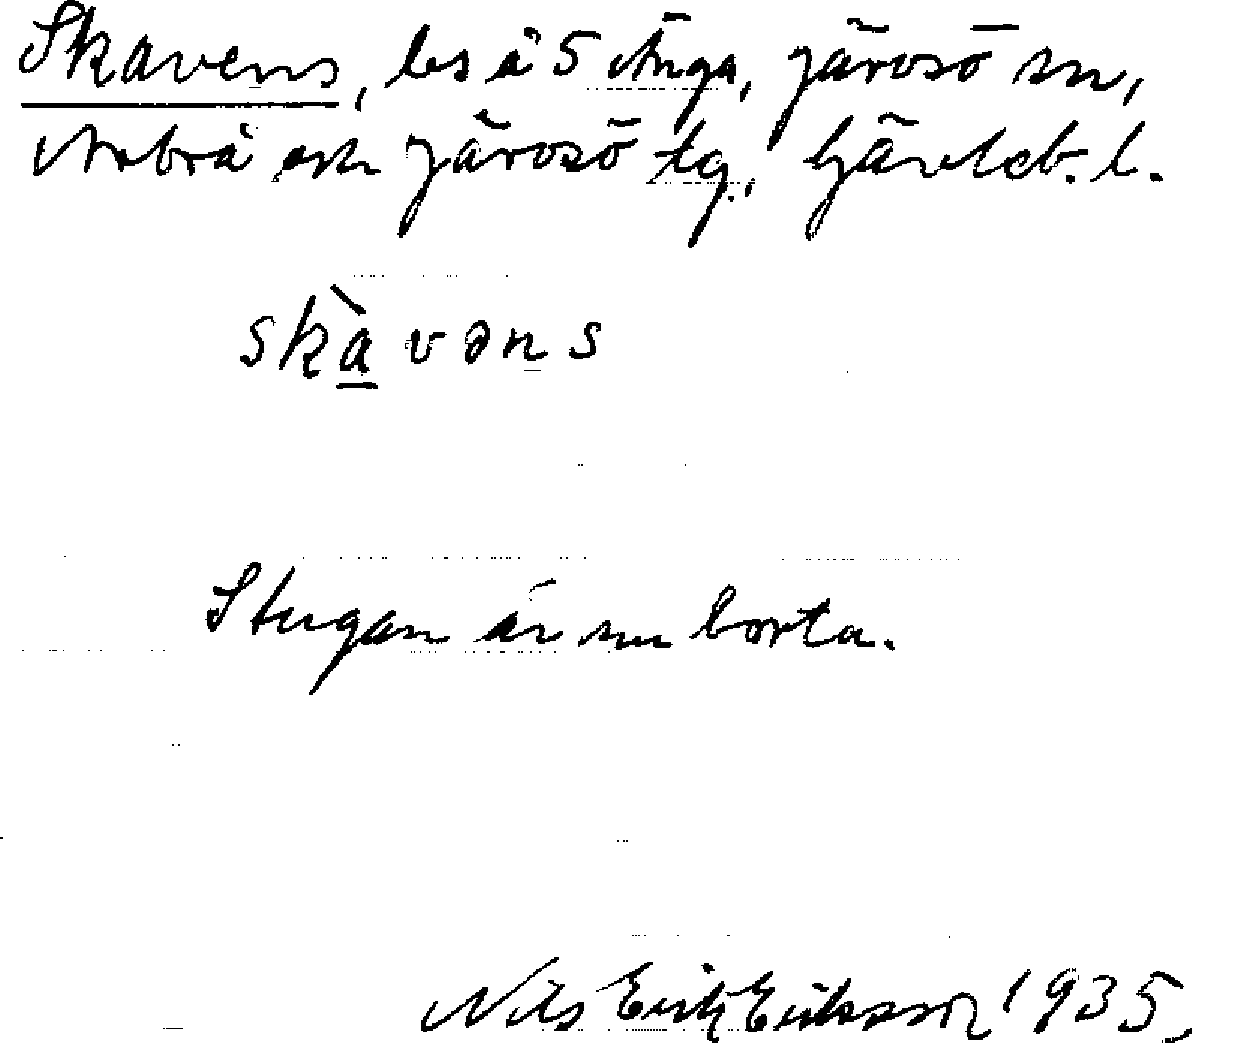 Skavens, les å 5 Änga, Järvsö sn,
Arbrå och Järvsö tg, Gävleb. l.
skàvəns
Stugan är nu borta.
Nils Erik Eriksson 1935.